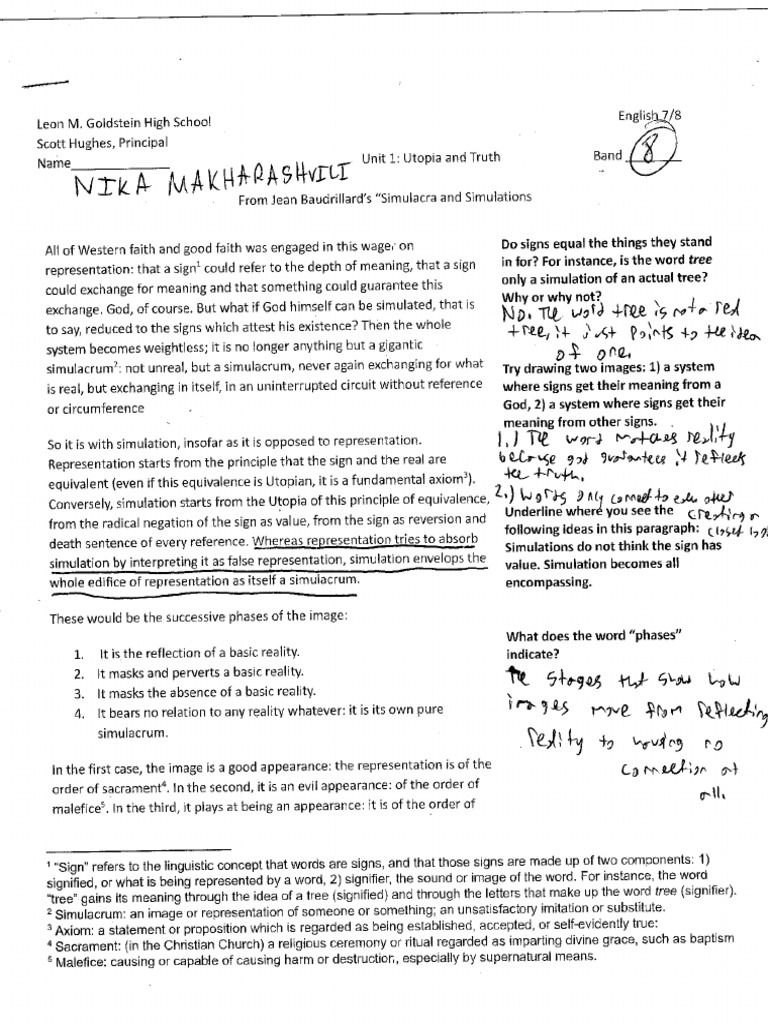 Leon M. Goldstein High School
English 7/8
Scott Hughes, Principal
Name____________
Unit 1: Utopia and Truth
Band 8
NIKA MAKHARASHVILI
From Jean Baudrillard's “Simulacra and Simulations
All of Western faith and good faith was engaged in this wager on
representation: that a sign¹ could refer to the depth of meaning, that a sign
could exchange for meaning and that something could guarantee this
exchange. God, of course. But what if God himself can be simulated, that is
to say, reduced to the signs which attest his existence? Then the whole
system becomes weightless; it is no longer anything but a gigantic
simulacrum²: not unreal, but a simulacrum, never again exchanging for what
is real, but exchanging in itself, in an uninterrupted circuit without reference
or circumference
So it is with simulation, insofar as it is opposed to representation.
Representation starts from the principle that the sign and the real are
equivalent (even if this equivalence is Utopian, it is a fundamental axiom³).
Conversely, simulation starts from the Utopia of this principle of equivalence,
from the radical negation of the sign as value, from the sign as reversion and
death sentence of every reference. Whereas representation tries to absorb
simulation by interpreting it as false representation, simulation envelops the
whole edifice of representation as itself a simulacrum.
These would be the successive phases of the image:
1. It is the reflection of a basic reality.
2. It masks and perverts a basic reality.
3. It masks the absence of a basic reality.
4. It bears no relation to any reality whatever: it is its own pure
simulacrum.
In the first case, the image is a good appearance: the representation is of the
order of sacrament⁴. In the second, it is an evil appearance: of the order of
malefice⁵. In the third, it plays at being an appearance: it is of the order of
Do signs equal the things they stand
in for? For instance, is the word tree
only a simulation of an actual tree?
Why or why not?
No. The word tree is not a real
tree, it just points to the idea
of one.
Try drawing two images: 1) a system
where signs get their meaning from a
God, 2) a system where signs get their
meaning from other signs.
1.) The word matches reality
because god guarantees it reflects
the truth.
2.) words only connect to each other
creating a
closed
Underline where you see the
following ideas in this paragraph:
Simulations do not think the sign has
value. Simulation becomes all
encompassing.
What does the word “phases”
indicate?
The stages that show how
images move from reflecting
reality to having no
connection at
all.
¹ “Sign” refers to the linguistic concept that words are signs, and that those signs are made up of two components: 1)
signified, or what is being represented by a word, 2) signifier, the sound or image of the word. For instance, the word
“tree” gains its meaning through the idea of a tree (signified) and through the letters that make up the word tree (signifier).
² Simulacrum: an image or representation of someone or something; an unsatisfactory imitation or substitute.
³ Axiom: a statement or proposition which is regarded as being established, accepted, or self-evidently true:
⁴ Sacrament: (in the Christian Church) a religious ceremony or ritual regarded as imparting divine grace, such as baptism
⁵ Malefice: causing or capable of causing harm or destruction, especially by supernatural means.